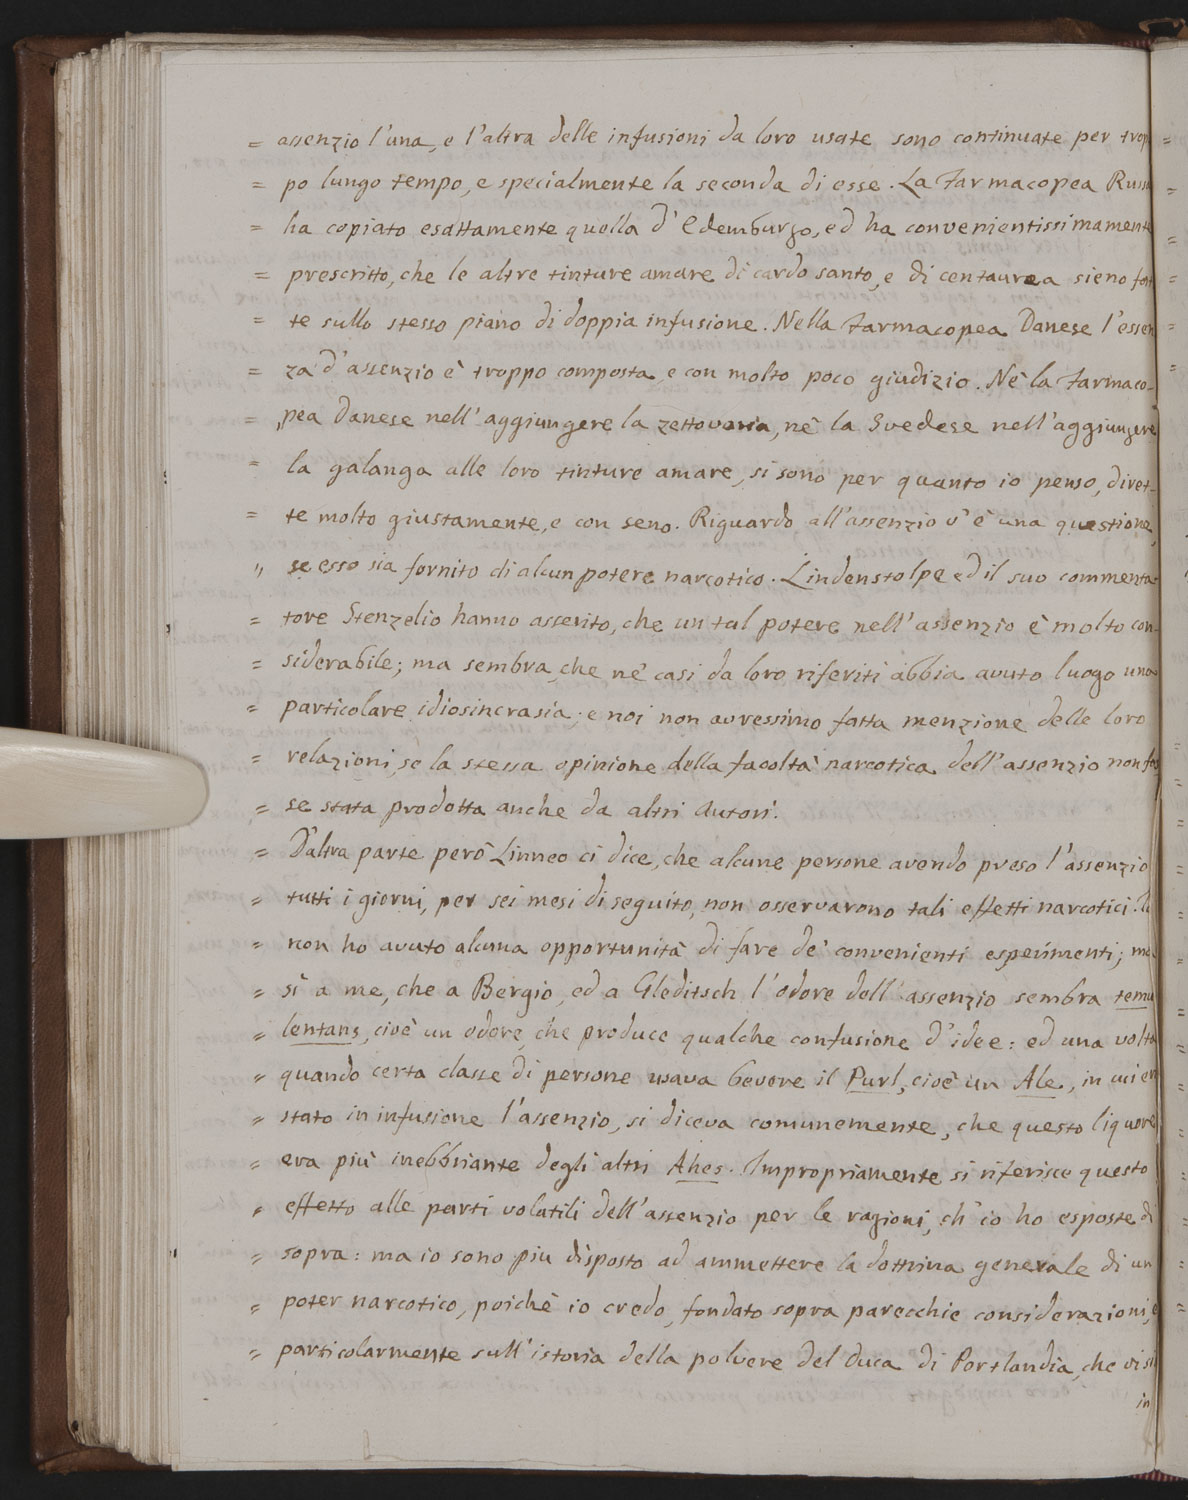 = assenzio l'una, e l'altra delle infusioni da loro usate sono continuate per trop
= po lungo tempo, e specialmente la seconda di esse. La Farmacopea Russa
= ha copiato esattamente quella d'Edemburgo, ed ha convenientissimamente
= prescritto, che le altre tinture amare di cardo santo, e di centaurea sieno fat
= te sullo stesso piano di doppia infusione. Nella Farmacopea Danese l'essen
= za d'assenzio è troppo composta e con molto poco giudizio. Nè la Farmaco-
= pea Danese nell'aggiungere la zettovaria, nè la Svedese nell'aggiungere
= la galanga alle loro tinture amare, si sono per quanto io penso, diret-
= te molto giustamente, e con seno. Riguardo all'assenzio v'è una questione,
" se esso sia fornito di alcun potere narcotico. Lindenstolpe ed il suo commenta-
= tore Stenzelio hanno asserito, che un tal potere nell'assenzio è molto con-
= siderabile; ma sembra, che ne' casi da loro riferiti abbia avuto luogo una
= particolare idiosincrasia; e noi non avressimo fatta menzione delle loro
= relazioni, se la stessa opinione della facoltà narcotica dell'assenzio non fos
= se stata prodotta anche da altri Autori.
= D'altra parte però Linneo ci dice, che alcune persone avendo preso l'assenzio
= tutti i giorni, per sei mesi di seguito, non osservarono tali effetti narcotici. Io
= non ho avuto alcuna opportunità di fare de' convenienti esperimenti; ma
= sì a me, che a Bergio, ed a Gleditsch l'odore dell'assenzio sembra temu
= lentans, cioè un odore, che produce qualche confusione d'idee: ed una volta
= quando certa classe di persone usava bevere il Purl, cioè un Ale, in cui era
= stato in infusione l'assenzio, si diceva comunemente, che questo liquore
= era più inebbriante degli altri Ahes. Impropriamente si riferisce questo
= effetto alle parti volatili dell'assenzio per le ragioni, ch'io ho esposte di
= sopra: ma io sono piu disposto ad ammettere la dottrina generale di un
= poter narcotico, poichè io credo, fondato sopra parecchie considerazioni, e
= particolarmente sull'istoria della polvere del Duca di Portlandia, che vi si
in